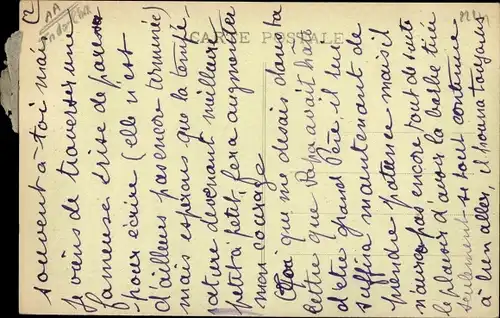 CARTE POSTALE
souvent à toi mai
Je viens de traverser une
fameuse crise de paresse
pour écrire (elle n'est
d'ailleurs pas encore terminée)
mais espérons que la tempé-
rature devenant meilleure
petit à petit, fera augmenter
mon courage
Toi qui me disais dans ta
lettre que Papa avait hâte
d'être grand Père, il lui
suffira maintenant de
prendre patience mais il
n'aura pas encore tout de suite
le plaisir d'avoir la barbe tirée
seulement si tout continue
à bien aller, il pourra toujours